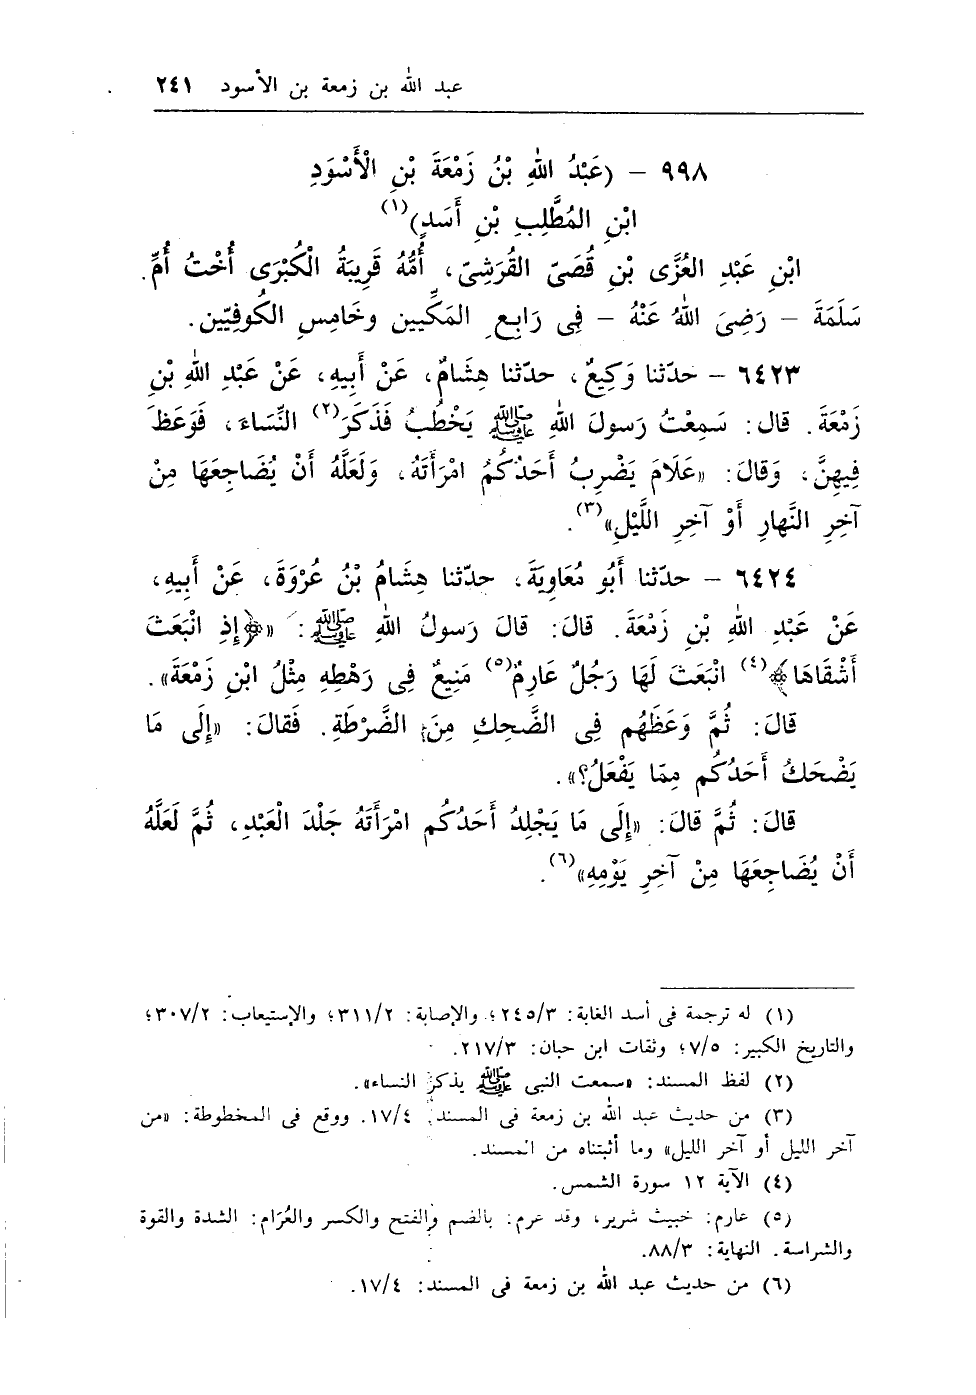 عبد الله بن زمعة بن الأسود ٢٤١
٩٩٨ – (عَبْدُ اللهِ بْنُ زَمْعَةَ بْنِ الْأَسْوَدِ
ابْنِ المُطَّلِبِ بْنِ أَسَدٍ)(١)
ابْنِ عَبْدِ العُزَّى بْنِ قُصَىّ القُرَشِىّ، أُمُّهُ قَرِيبَةُ الْكُبْرَى أُخْتُ أُمِّ.
سَلَمَةَ – رَضِىَ اللهُ عَنْهُ – فِى رَابِعِ المَكِّيين وخَامِسِ الكُوفِيّين.
٦٤٢٣ – حدّثنا وَكِيعٌ، حدّثنا هِشَامٌ، عَنْ أَبِيهِ، عَنْ عَبْدِ اللهِ بْنِ
زَمْعَةَ. قال: سَمِعْتُ رَسولَ اللهِ ﷺ يَخْطُبُ فَذَكَرَ(٢) النِّسَاءَ، فَوَعَظَ
فِيهِنَّ، وَقالَ: «عَلَامَ يَضْرِبُ أَحَدُكُمُ امْرَأَتَهُ، وَلَعَلَّهُ أَنْ يُضَاجِعَهَا مِنْ
آخِرِ النَّهارِ أَوْ آخِرِ اللَّيْلِ»(٣).
٦٤٢٤ – حدّثنا أَبُو مُعَاوِيَةَ، حدّثنا هِشَامُ بْنُ عُرْوَةَ، عَنْ أَبِيهِ،
عَنْ عَبْدِ اللهِ بْنِ زَمْعَةَ. قالَ: قالَ رَسولُ اللهِ ﷺ: «﴿إِذِ انْبَعَثَ
أَشْقَاهَا﴾(٤) انْبَعَثَ لَهَا رَجُلٌ عَارِمٌ(٥) مَنِيعٌ فِى رَهْطِهِ مِثْلُ ابْنِ زَمْعَةَ».
قَالَ: ثُمَّ وَعَظَهُم فِى الضَّحِكِ مِنَ الضَّرْطَةِ. فَقالَ: «إِلَى مَا
يَضْحَكُ أَحَدُكُم مِمّا يَفْعَلُ؟».
قَالَ: ثُمَّ قالَ: «إِلَى مَا يَجْلِدُ أَحَدُكُم امْرَأَتَهُ جَلْدَ الْعَبْدِ، ثُمَّ لَعَلَّهُ
أَنْ يُضَاجِعَهَا مِنْ آخِرِ يَوْمِهِ»(٦).
(١) له ترجمة فى أسد الغابة: ٢٤٥/٣؛ والإصابة: ٣١١/٢؛ والإستيعاب: ٣٠٧/٢؛
والتاريخ الكبير: ٧/٥؛ وثقات ابن حبان: ٢١٧/٣.
(٢) لفظ المسند: «سمعت النبى ﷺ يذكر النساء».
(٣) من حديث عبد الله بن زمعة فى المسند: ١٧/٤. ووقع فى المخطوطة: «من
آخر الليل أو آخر الليل» وما أثبتناه من المسند.
(٤) الآية ١٢ سورة الشمس.
(٥) عارم: خبيث شرير، وقد عرم: بالضم والفتح والكسر والعُرَام: الشدة والقوة
والشراسة. النهاية: ٨٨/٣.
(٦) من حديث عبد الله بن زمعة فى المسند: ١٧/٤.